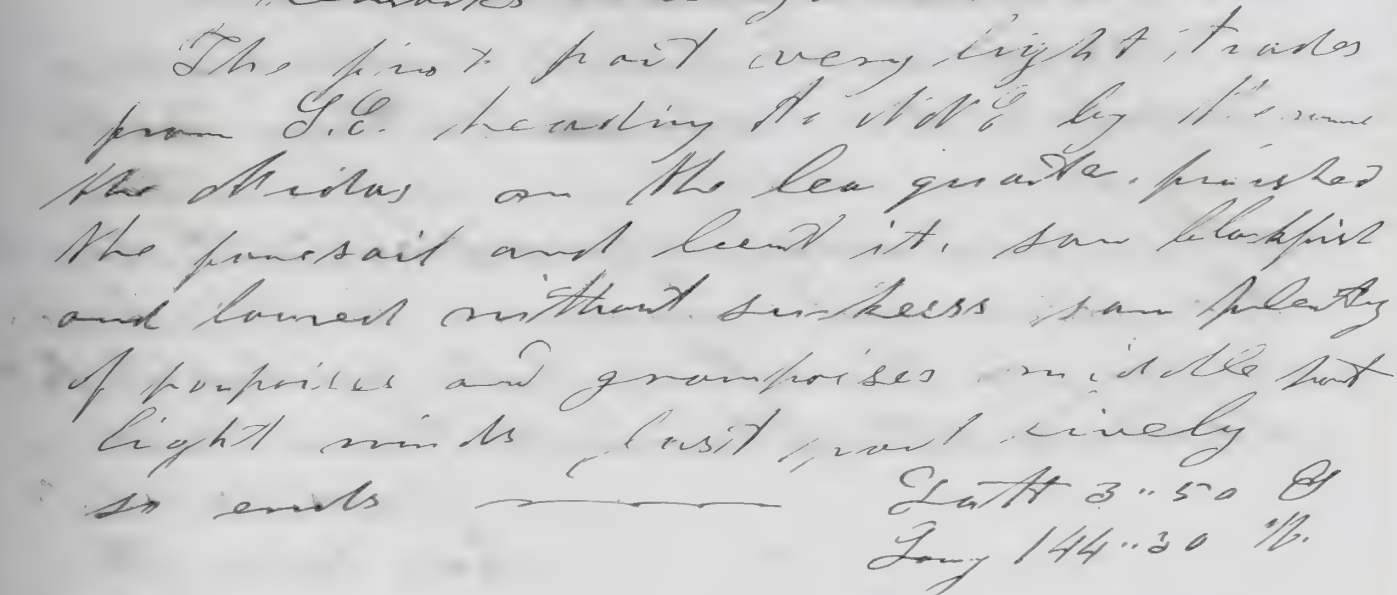 Remarks
The first part very light trades
from S.E. heading to NNE by the wind
the Midas on the lea quarter. finished
the foresail and bent it. saw blackfish
and lowred without suckesss saw plenty
of porpoises and grampoises middle part
light winds last part lively
so ends
Latt 3"50 S
Long 144"30 W.